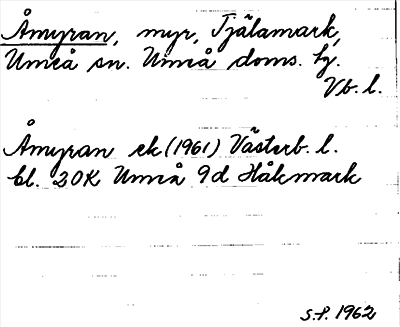 Åmyran, myr, Tjälamark,
Umeå sn. Umeå doms. hg.
Vb. l.
Åmyran ek (1961) Västerb. l.
bl. 20K Umeå 9d Håkmark
S.P. 1962